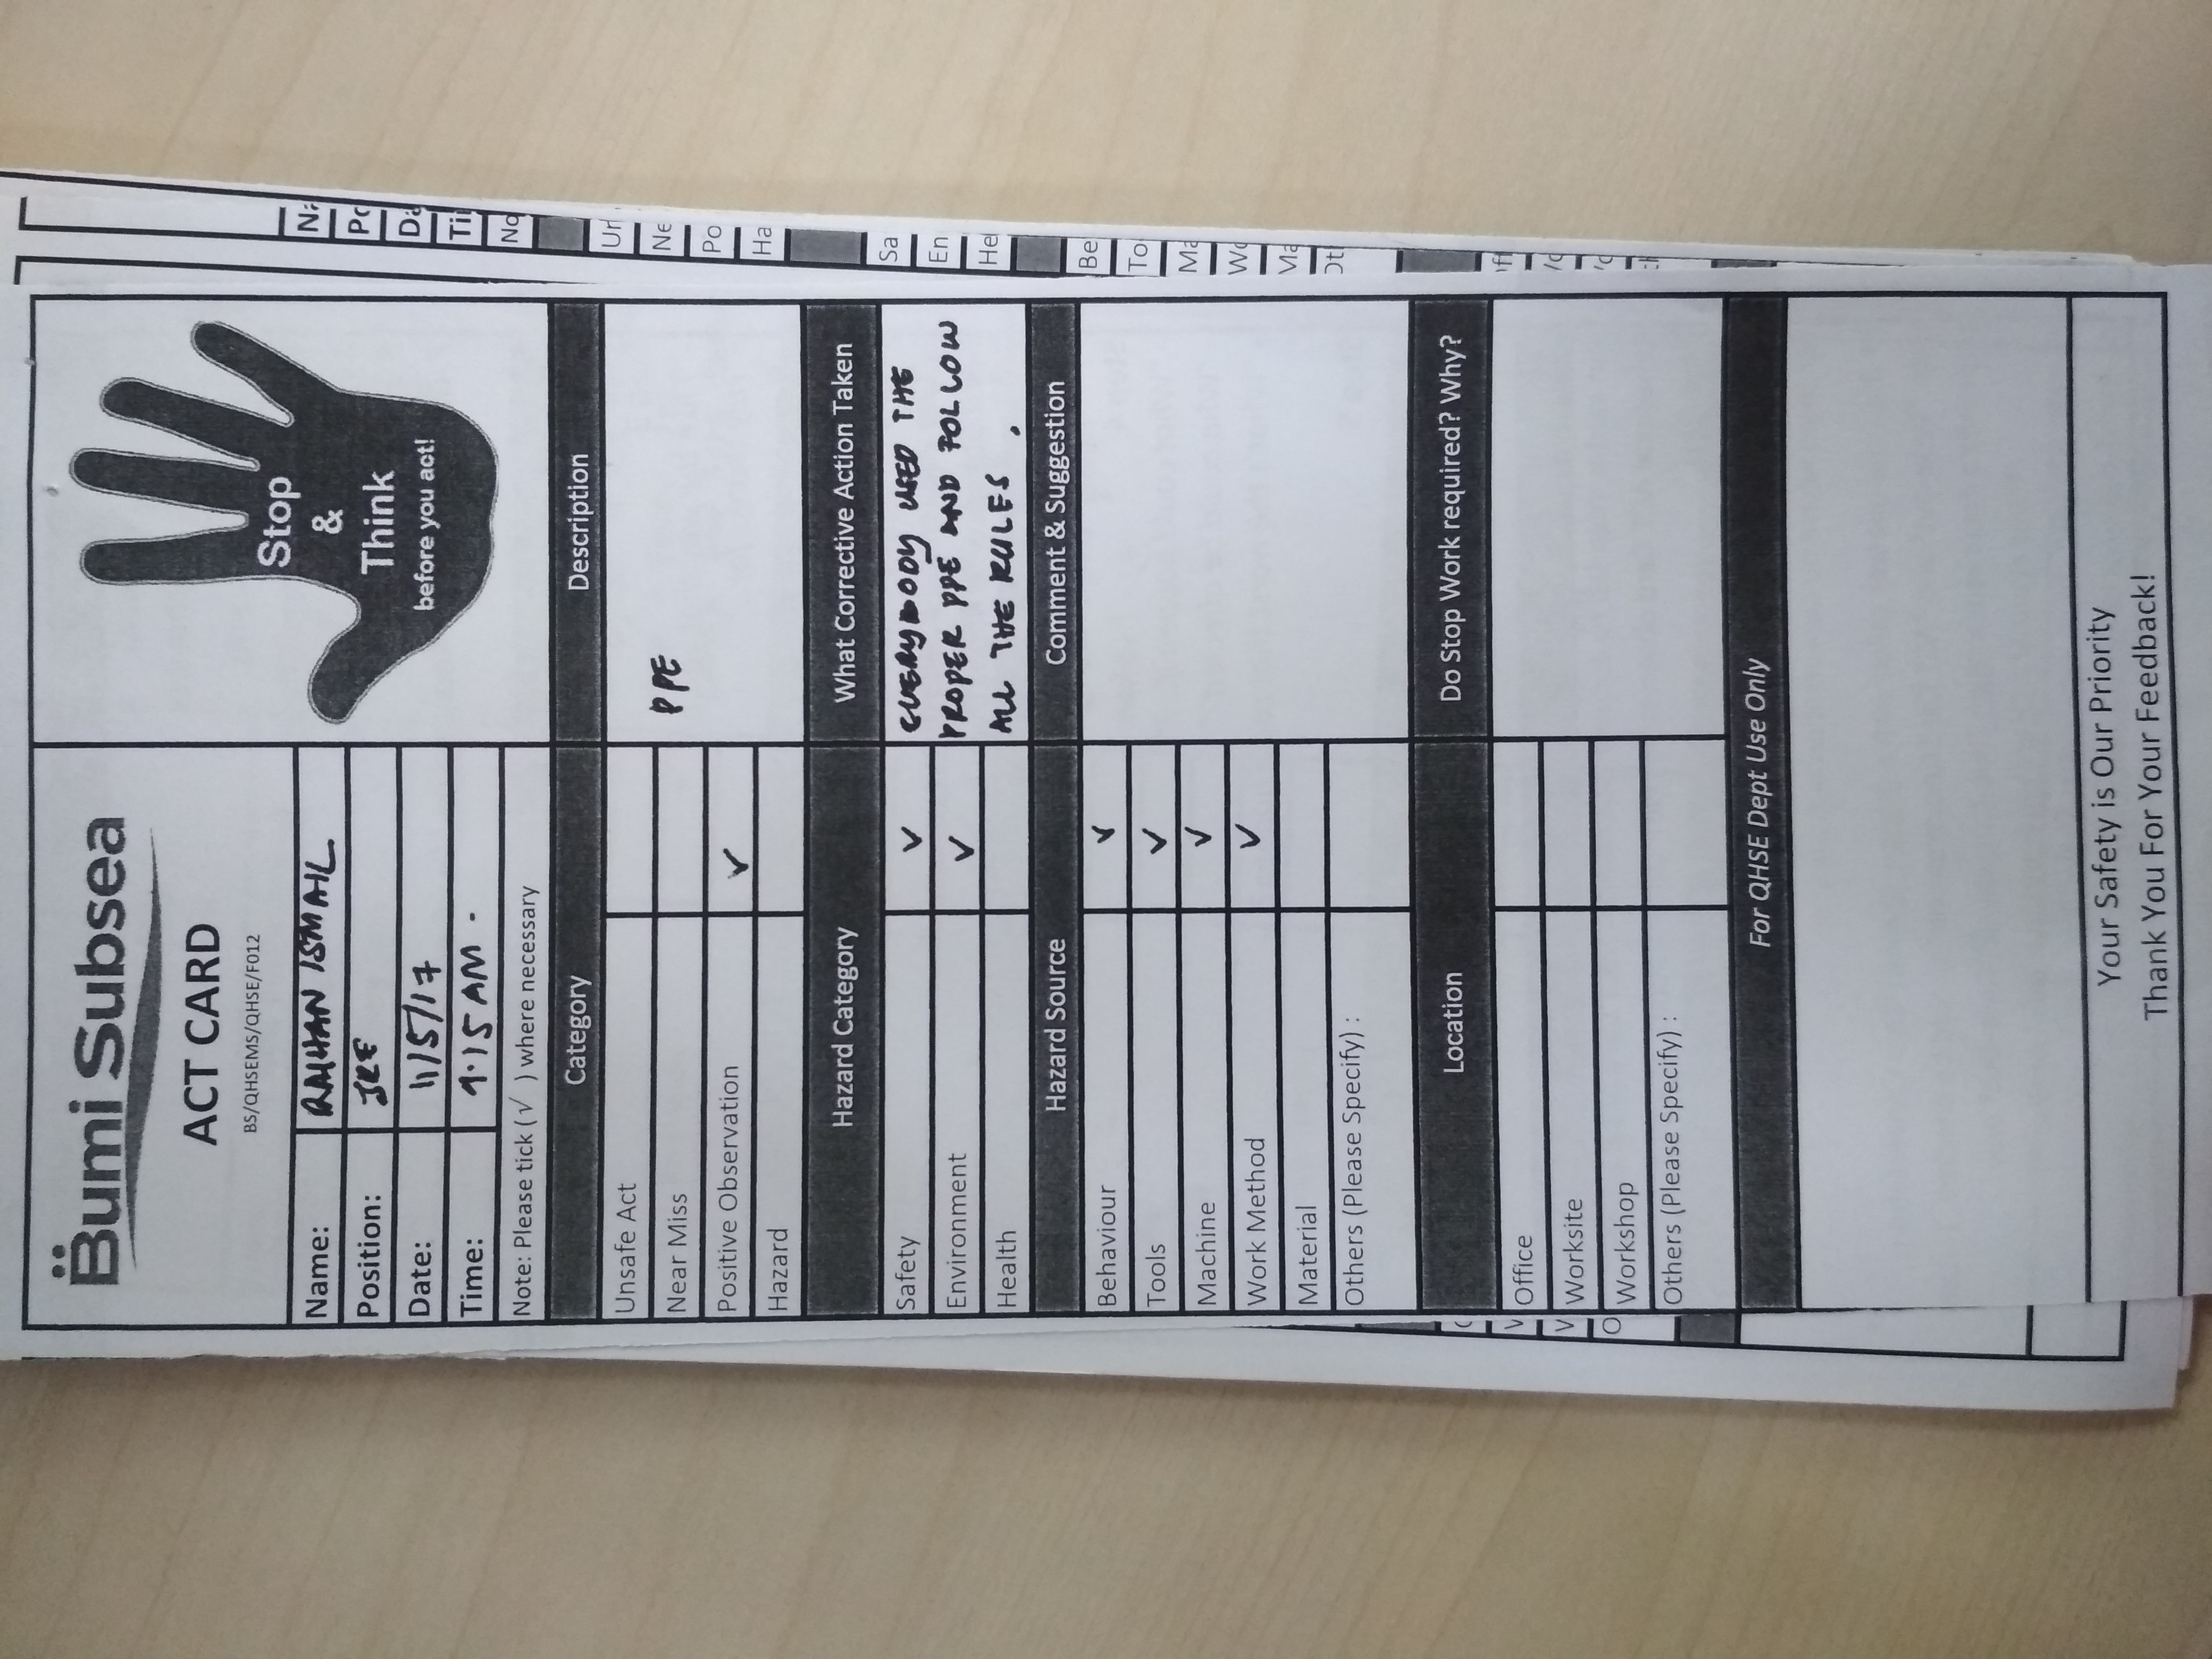 Bumi Subsea
ACT CARD
BS/QHSEMS/QHSE/F012
Stop
&
Think
before you act!
Name: RAIHAN ISMAIL
Position: JRE
Date: 1/5/17
Time: 9.15 AM.
Note: Please tick ( √ ) where necessary
Category Description
Unsafe Act
Near Miss PPE
Positive Observation √
Hazard
Hazard Category What Corrective Action Taken
Safety √ EVERYBODY USED THE
Environment √ PROPER PPE AND FOLLOW
Health ALL THE RULES.
Hazard Source Comment & Suggestion
Behaviour √
Tools √
Machine √
Work Method √
Material
Others (Please Specify) :
Location Do Stop Work required? Why?
Office
Worksite
Workshop
Others (Please Specify) :
For QHSE Dept Use Only
Your Safety is Our Priority
Thank You For Your Feedback!